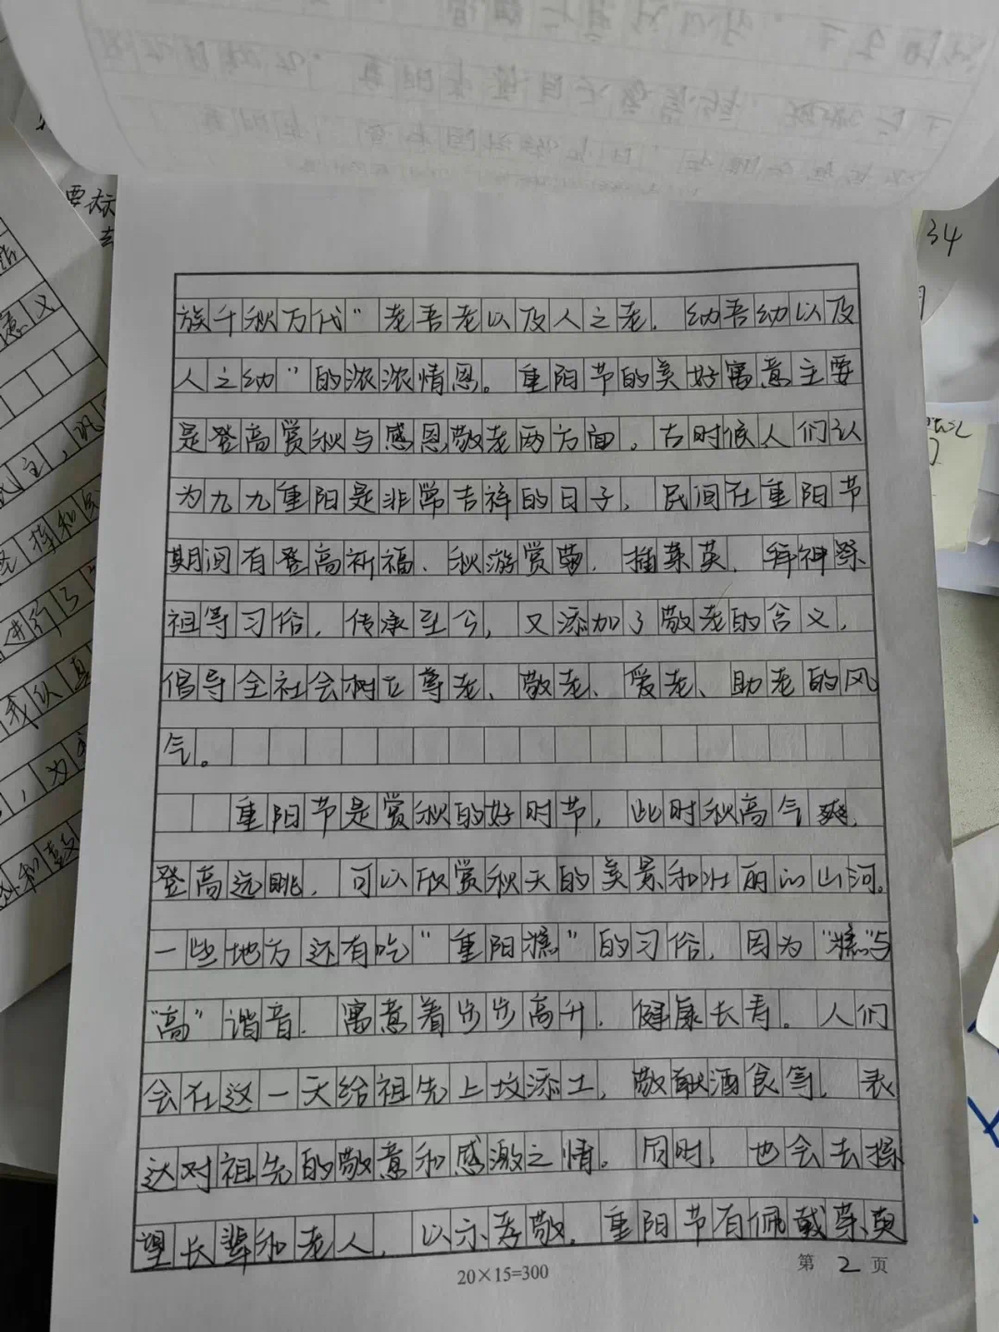 族千秋万代“老吾老以及人之老，幼吾幼以及
人之幼”的浓浓情恩。重阳节的美好寓意主要
是登高赏秋与感恩敬老两方面，古时候人们认
为九九重阳是非常吉祥的日子，民间在重阳节
期间有登高祈福、秋游赏菊、插茱萸、拜神祭
祖等习俗，传承至今，又添加了敬老的含义，
倡导全社会树立尊老、敬老、爱老、助老的风
气。
重阳节是赏秋的好时节，此时秋高气爽，
登高远眺，可以欣赏秋天的美景和壮丽的山河。
一些地方还有吃“重阳糕”的习俗，因为“糕”与
“高”谐音，寓意着步步高升，健康长寿。人们
会在这一天给祖先上坟添土，敬献酒食等，表
达对祖先的敬意和感激之情。同时，也会去探
望长辈和老人，以示孝敬。重阳节有佩戴茱萸
20×15=300
第 2 页
34